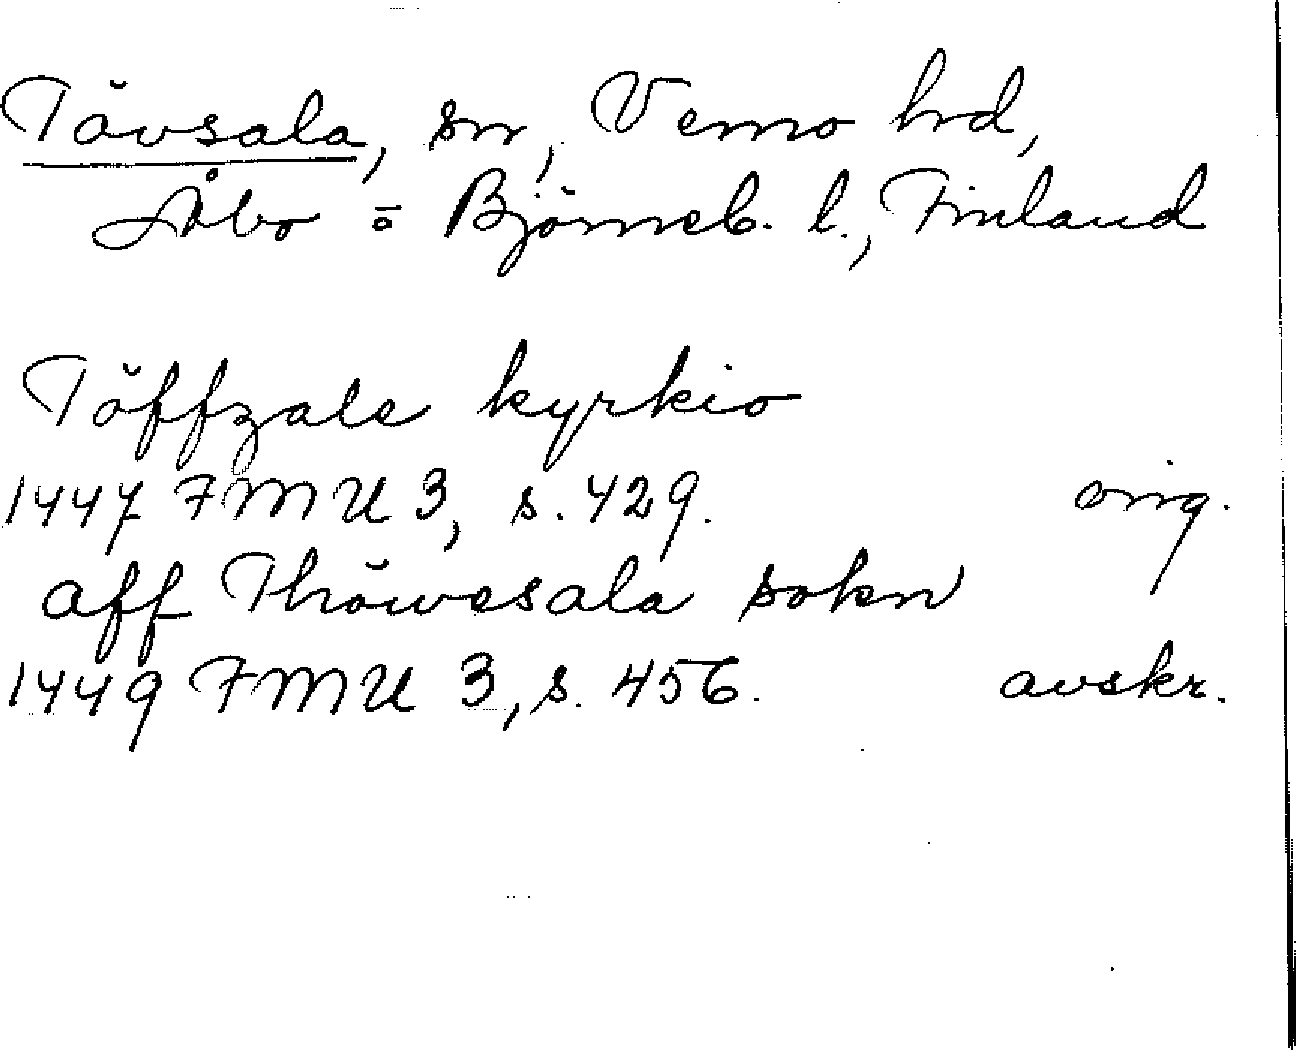 Tövsala, sn, Vemo hrd,
Åbo o Björneb. l., Finland
Töffzale kyrkio
1447 FMU 3, s. 429. orig.
aff Thöwesala sokn
1449 FMU 3, s. 456. avskr.